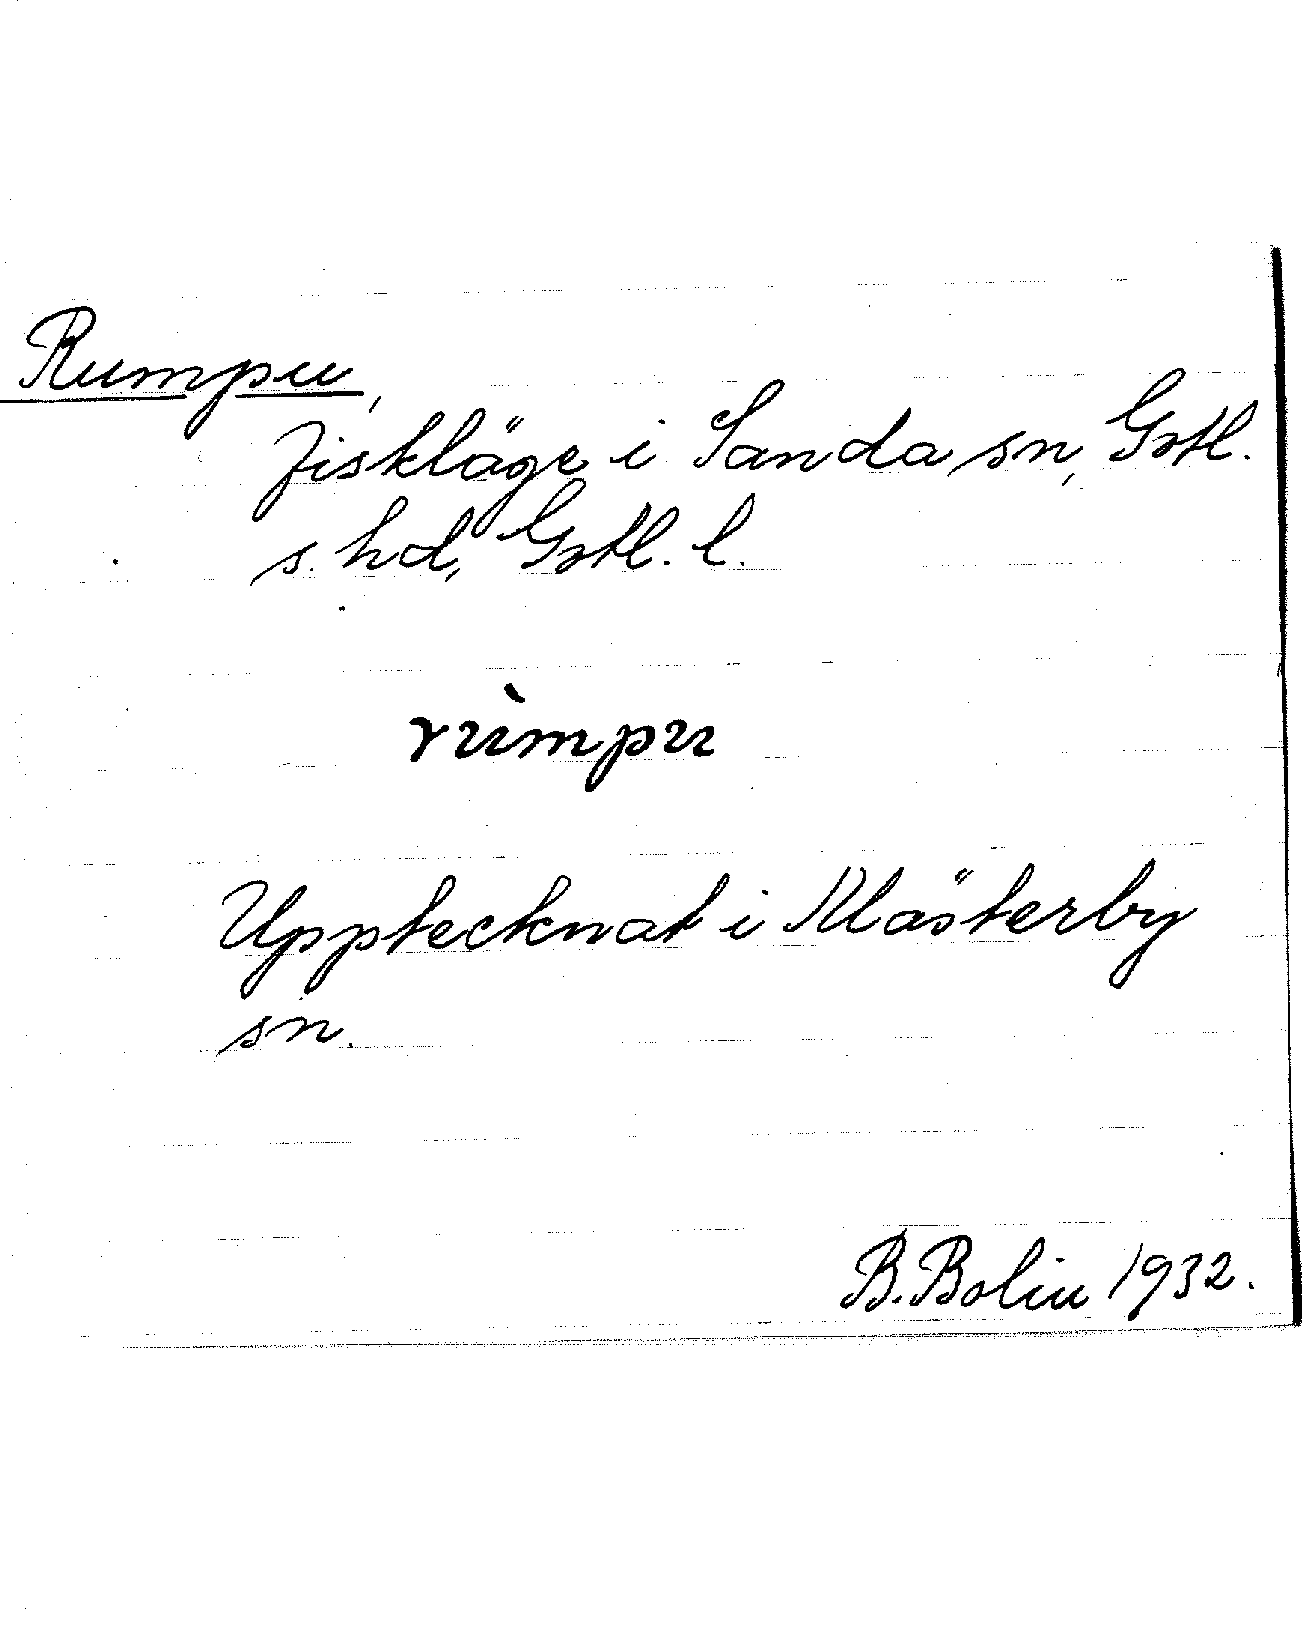 Rumpu,
Fiskläge i Sanda sn, Gotl.
s. hd, Gotl. l.
rùmpu
Upptecknat i Klästerby
sn.
B. Bolin 1932.